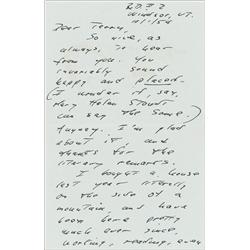 R.D. #2
Windsor, VT.
Dear Terry,
So nice, as
always, to hear
from you. You
invariably sound
happy and placed.
(I wonder if, say,
Mary Helen Stoudt
can say the same.)
Anyway. I'm glad
about it, and
thanks for the
literary remarks.
I bought a house
last year literally
on the side of a
mountain and have
been here pretty
much ever since.
Working, reading, even